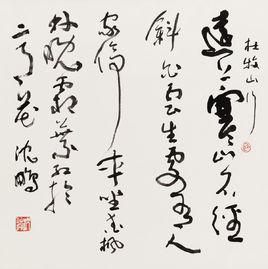 杜牧山行
遠上寒山石徑
斜白雲生處有人
家停車坐愛楓
林晚霜葉紅於
二月花沈鵬